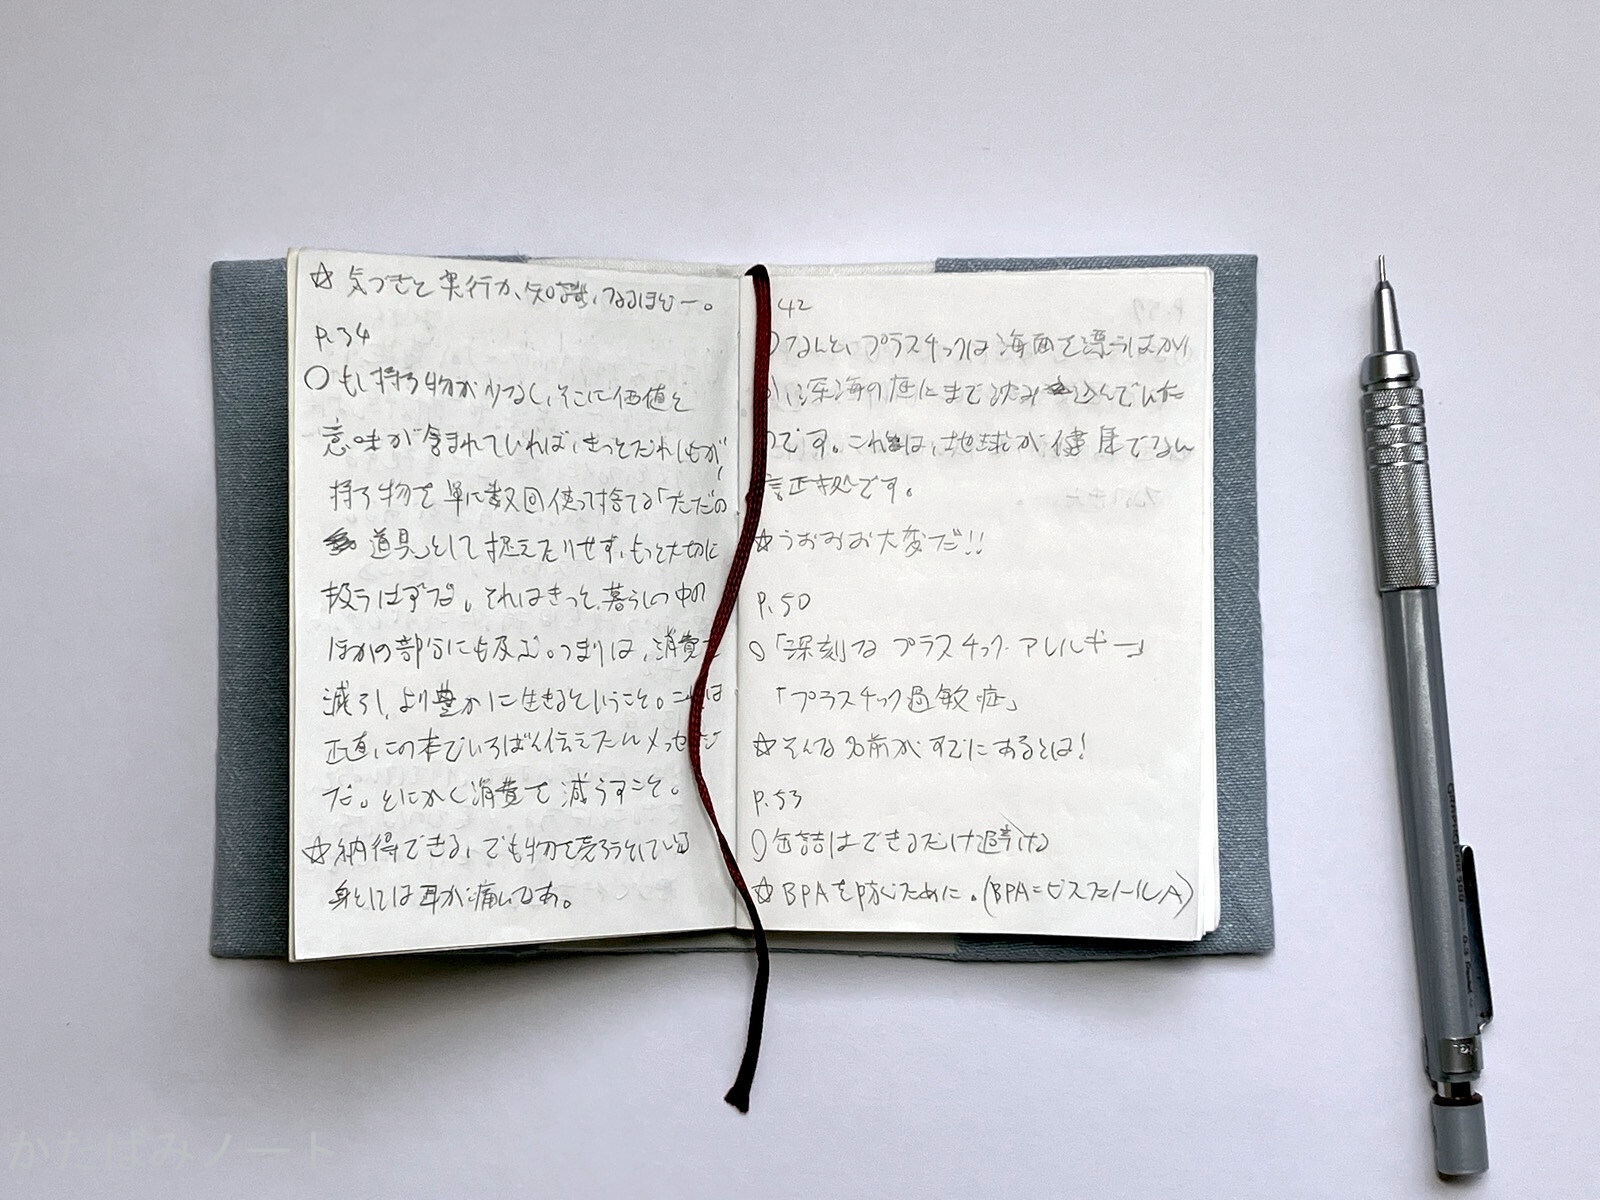 ☆気づきと実行か、知識、なるほどー。
P.34
○もし持ち物が少なく、そこに価値と
意味が含まれていれば、きっとだれもが、
持ち物を単に数回使って捨てる「ただの
道具」として捉えたりせず、もっと大切に
扱うはずだ。それはきっと、暮らしの中の
ほかの部分にも及ぶ。つまりは、消費を
減らし、より豊かに生きるということ。これは
正直にこの本でいちばん伝えたいメッセージ
だ。とにかく消費を減らすこと。
☆納得できる、でも物を売ろうとしている
身としては耳が痛いなあ。
42
なんと、プラスチックは海面を漂うばかり
か、深海の底にまで沈み込んでいた
のです。これは、地球が健康でない
証拠です。
☆うおおお大変だ!!
P.50
○「深刻なプラスチックアレルギー」
「プラスチック過敏症」
☆そんな名前がすでにあるとは!
P.53
○缶詰はできるだけ避ける
☆BPAを防ぐために。(BPA=ビスフェノールA)
P.57
かたばみノート